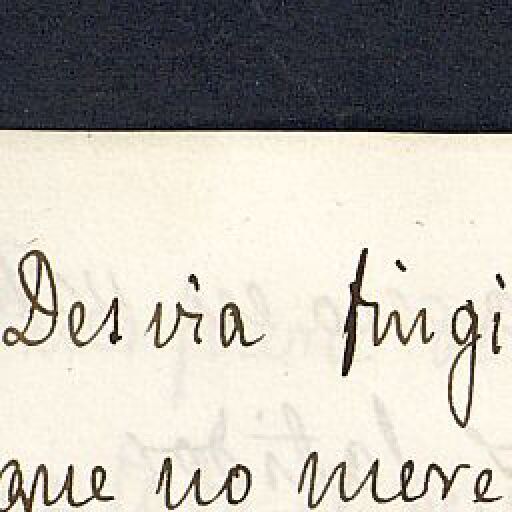 Desvia fingi
que no mere